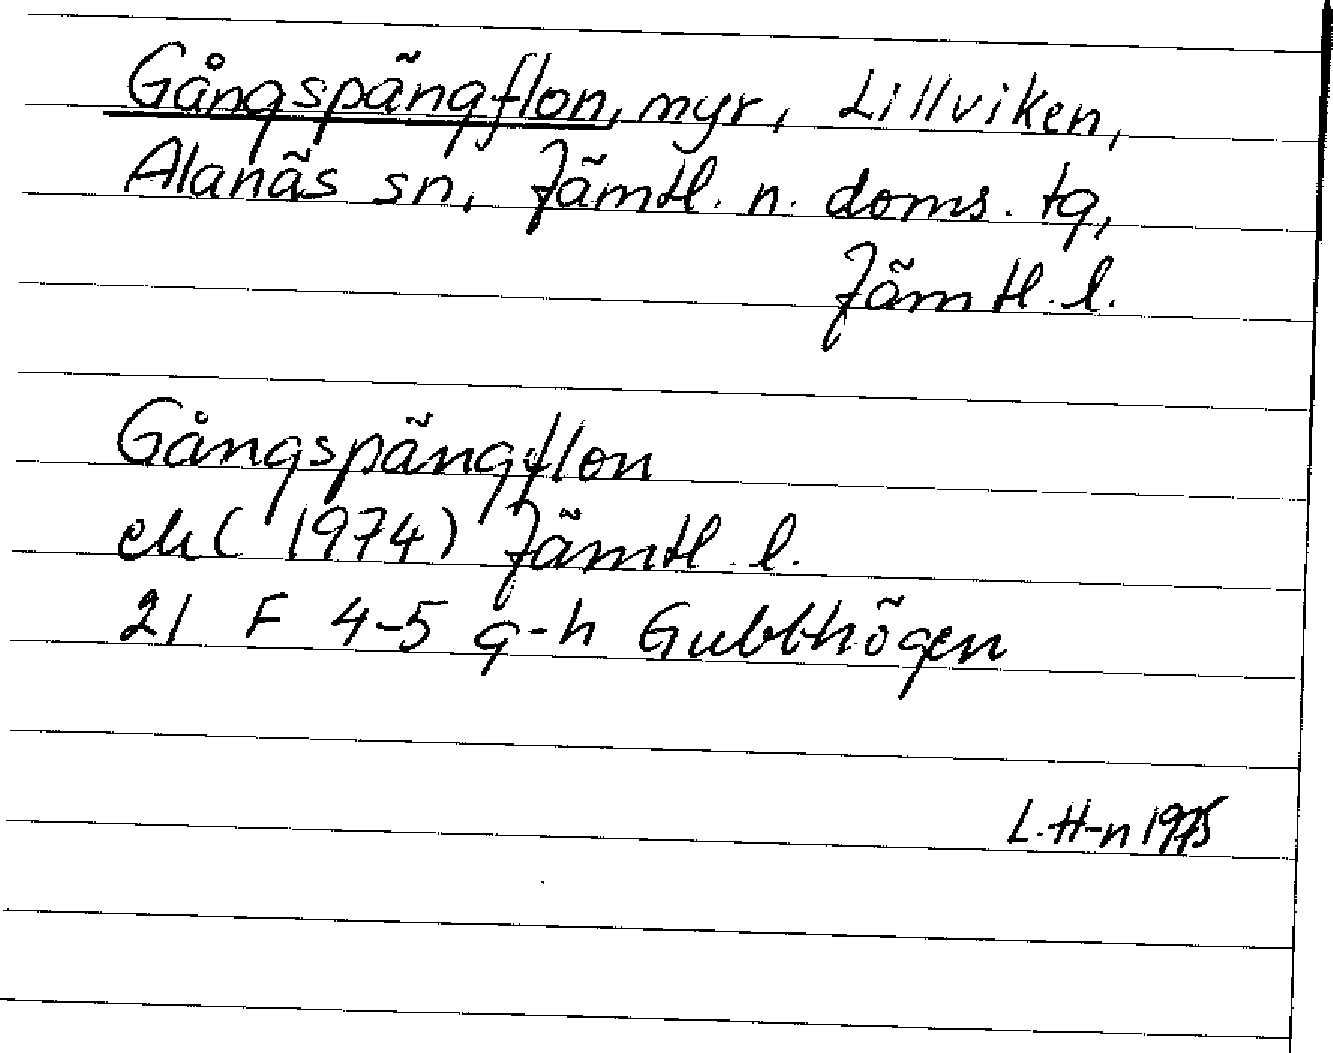 Gångspängflon, myr, Lillviken,
Alanäs sn, Jämtl. n. doms. tg,
Jämtl. l.
Gångspängflon
ek (1974) Jämtl. l.
21 F 4-5 g-h Gubbhögen
L. H-n 1975